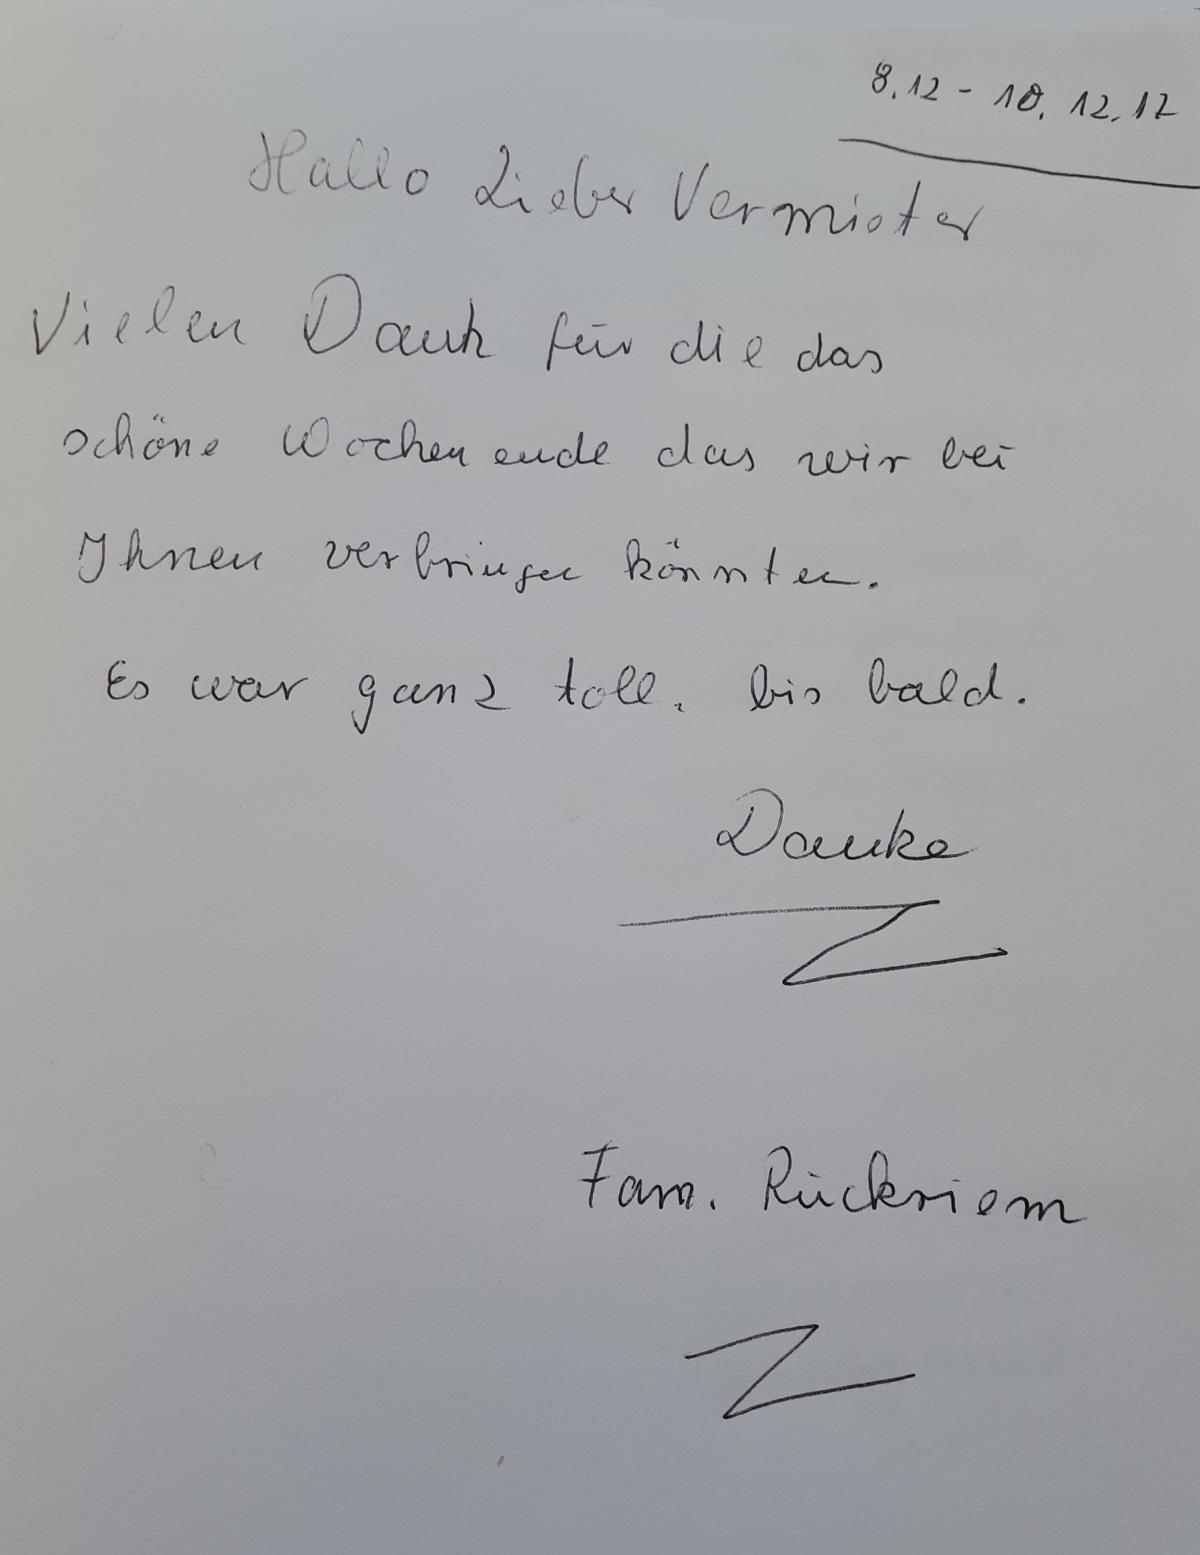 8.12 - 10.12.17
Hallo Lieber Vermieter
Vielen Dank für die das
schöne Wochenende das wir bei
Ihnen verbringen könnten.
Es war ganz toll. bis bald.
Danke
Fam. Rückriem